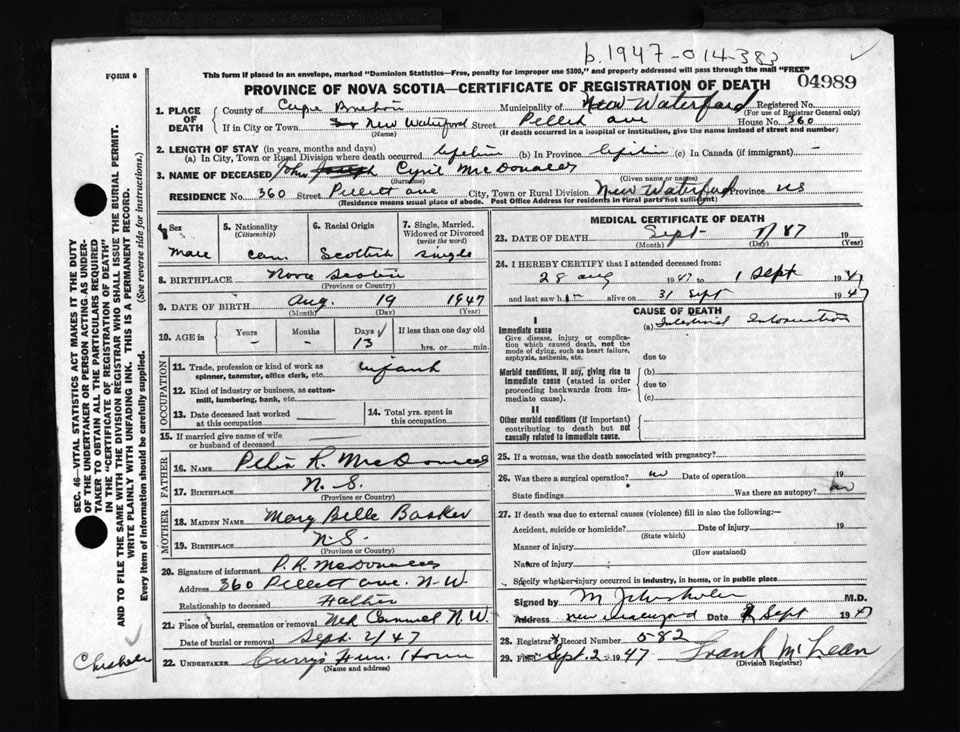 b.1947-014-383
FORM 6
This form if placed in an envelope, marked "Dominion Statistics—Free, penalty for improper use $300," and properly addressed will pass through the mail "FREE"
PROVINCE OF NOVA SCOTIA—CERTIFICATE OF REGISTRATION OF DEATH
04989
1. PLACE OF DEATH
County of Cape Breton Municipality of New Waterford Registered No.
(For use of Registrar General only)
If in City or Town New Waterford Street Pellett ave House No. 360
(Name) (If death occurred in a hospital or institution, give the name instead of street and number)
2. LENGTH OF STAY (in years, months and days)
(a) In City, Town or Rural Division where death occurred lifetime (b) In Province lifetime (c) In Canada (if immigrant) -
3. NAME OF DECEASED John Joseph Cyril McDonald
(Surname) (Given name or names)
RESIDENCE No. 360 Street Pellett ave City, Town or Rural Division New Waterford Province NS
(Residence means usual place of abode. Post Office Address for residents in rural parts not sufficient)
4. Sex
5. Nationality
(Citizenship)
6. Racial Origin
7. Single, Married, Widowed or Divorced
(write the word)
Male Can Scottish single
8. BIRTHPLACE Nova Scotia
(Province or Country)
9. DATE OF BIRTH Aug. 19 1947
(Month) (Day) (Year)
10. AGE in Years Months Days If less than one day old
- - 13 hrs. or min.
OCCUPATION
11. Trade, profession or kind of work as spinner, teamster, office clerk, etc. infant
12. Kind of industry or business, as cotton-mill, lumbering, bank, etc.
13. Date deceased last worked at this occupation
14. Total yrs. spent in this occupation
15. If married give name of wife or husband of deceased
FATHER
16. NAME R. McDonald
17. BIRTHPLACE N. S.
(Province or Country)
MOTHER
18. MAIDEN NAME Mary Belle Basker
19. BIRTHPLACE N.S.
(Province or Country)
20. Signature of informant P. R. McDonald
Address 360 Pellett ave. N.W.
Relationship to deceased Father
21. Place of burial, cremation or removal Carmel N.W.
Date of burial or removal Sept. 2/47
22. UNDERTAKER Curry's Fun. Home
(Name and address)
MEDICAL CERTIFICATE OF DEATH
23. DATE OF DEATH Sept 19
(Month) (Day) (Year)
24. I HEREBY CERTIFY that I attended deceased from:
28 aug 1947 to 1 Sept 1947
and last saw him alive on 31 Sept 1947
CAUSE OF DEATH
I
Immediate cause
Give disease, injury or complication which caused death, not the mode of dying, such as heart failure, asphyxia, asthenia, etc.
(a) Intestinal
due to
Morbid conditions, if any, giving rise to immediate cause (stated in order proceeding backwards from immediate cause).
(b)
due to
(c)
II
Other morbid conditions (if important) contributing to death but not causally related to immediate cause.
25. If a woman, was the death associated with pregnancy?
26. Was there a surgical operation? no Date of operation 19
State findings Was there an autopsy? no
27. If death was due to external causes (violence) fill in also the following:—
Accident, suicide or homicide? Date of injury 19
(State which)
Manner of injury
(How sustained)
Nature of injury
Specify whether injury occurred in industry, in home, or in public place
Signed by M.D.
Address Date Sept 1947
28. Registrar's Record Number 582
29. Sept. 2 1947 Frank McLean
(Division Registrar)
SEC. 46—VITAL STATISTICS ACT MAKES IT THE DUTY
OF THE UNDERTAKER OR PERSON ACTING AS UNDER-
TAKER TO OBTAIN ALL THE PARTICULARS REQUIRED
IN THE "CERTIFICATE OF REGISTRATION OF DEATH"
AND TO FILE THE SAME WITH THE DIVISION REGISTRAR WHO SHALL ISSUE THE BURIAL PERMIT.
WRITE PLAINLY WITH UNFADING INK. THIS IS A PERMANENT RECORD.
Every item of information should be carefully supplied. (See reverse side for instructions.)
Chisholm